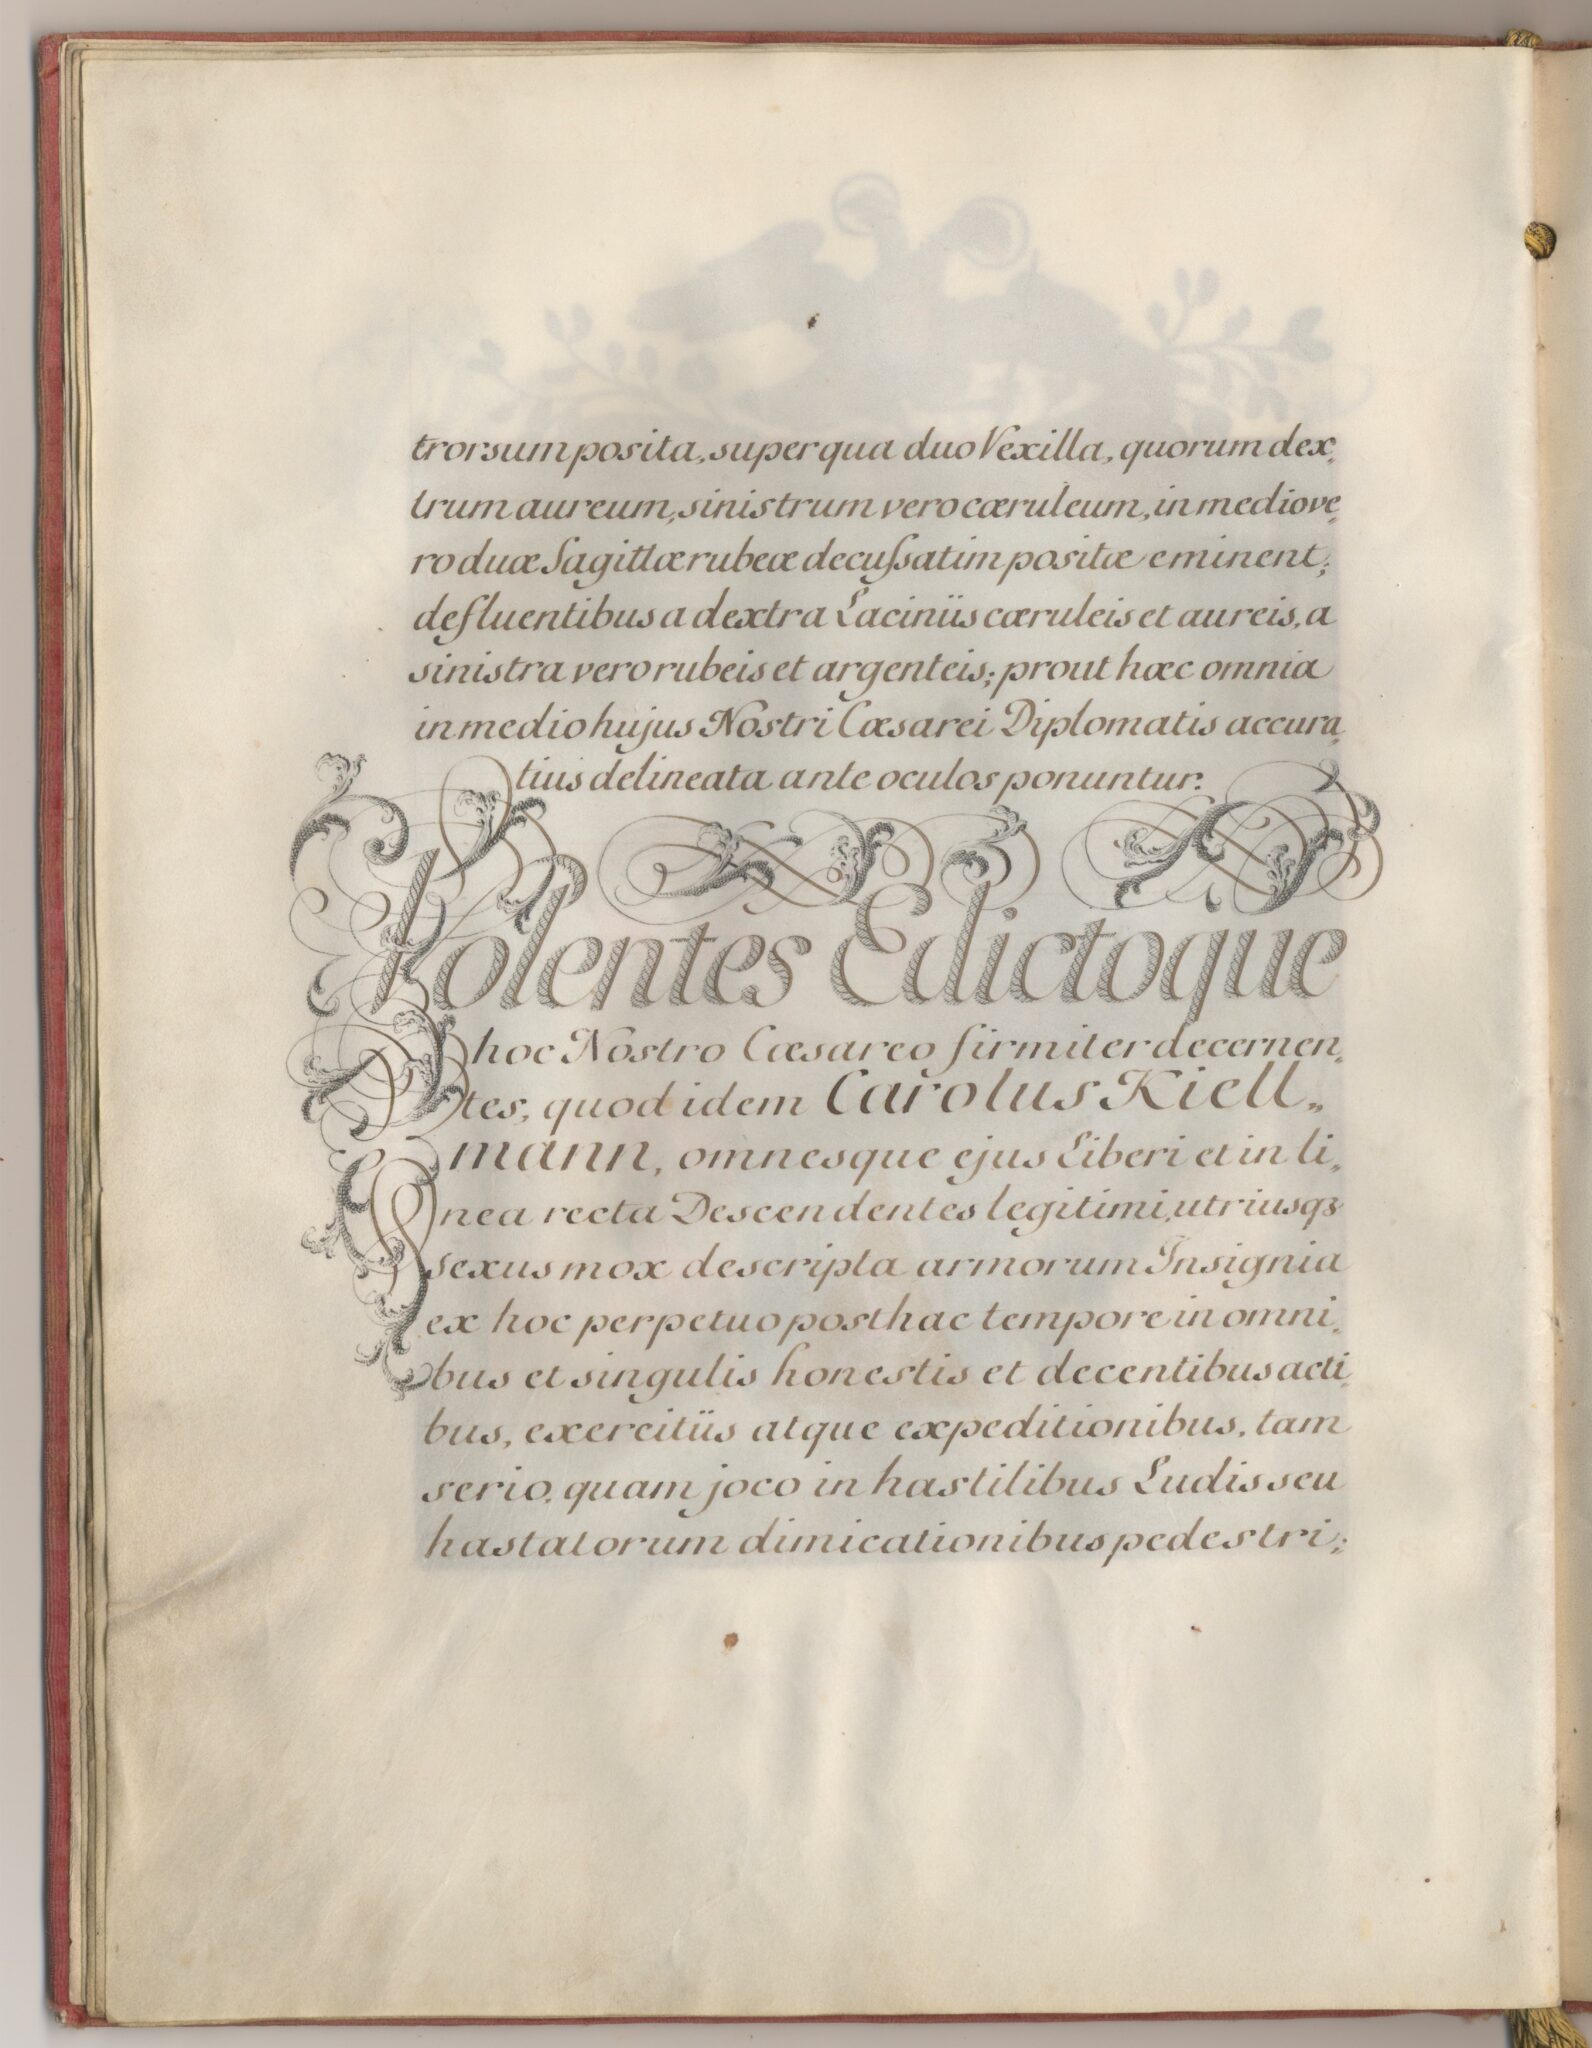 trorsum posita, super qua duo Vexilla, quorum dex„
trum aureum, sinistrum vero cæruleum, in medio ve„
ro duæ Sagittæ rubeæ decuſsatim positæ eminent;
defluentibus a dextra Laciniis cæruleis et aureis, a
sinistra vero rubeis et argenteis; prout hæc omnia
in medio hujus Nostri Cæsarei Diplomatis accura„
tius delineata ante oculos ponuntur.
Volentes Edictoque
hoc Nostro Cæsareo firmiter decernen„
tes, quod idem Carolus Kiell„
mann, omnesque ejus Liberi et in li„
nea recta Descendentes legitimi, utriusqꝫ
sexus mox descripta armorum Insignia
ex hoc perpetuo posthac tempore in omni„
bus et singulis honestis et decentibus acti„
bus, exercitiis atque expeditionibus, tam
serio, quam joco in hastilibus Ludis seu
hastatorum dimicationibus pedestri„